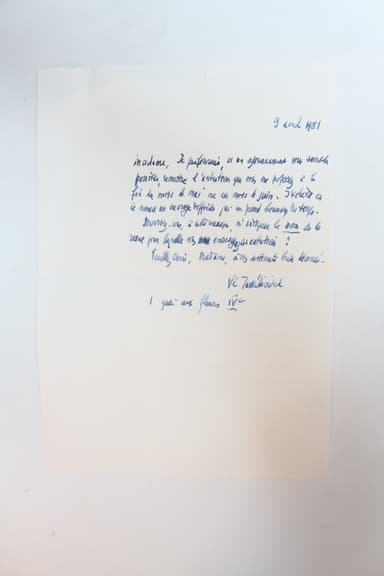 9 avril 1981
Madame, Je préférerais, si un ajournement vous semble
possible, remettre l'entretien que vous me proposez à la
fin du mois de mai ou au mois de juin.
le moment un ouvrage difficile qui me prend beaucoup de temps.
Pouvez-vous, à cette occasion, m'indiquer le nom de la
revue pour laquelle vous envisagez cet entretien ?
Veuillez croire, Madame, à mes sentiments bien dévoués.
Vl Jankélévitch
1 quai aux fleurs IVe